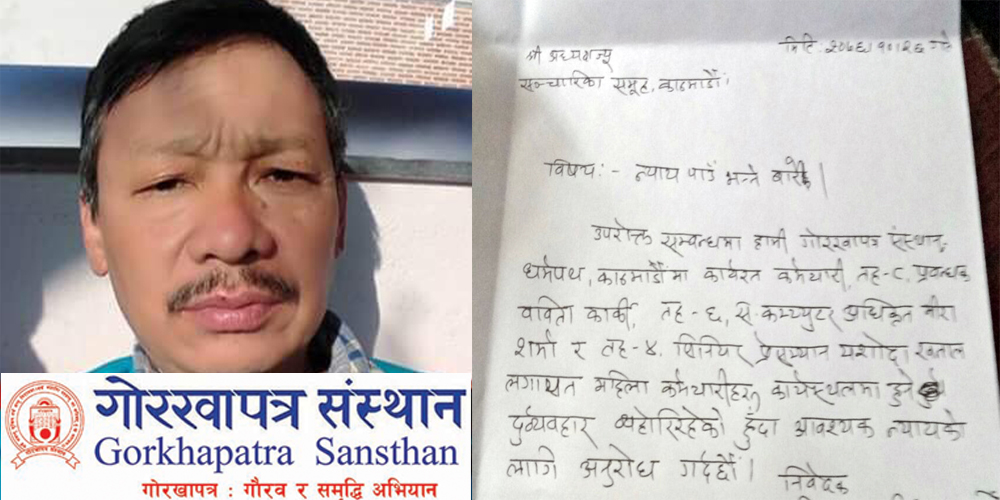 गोरखापत्र संस्थान
Gorkhapatra Sansthan
गोरखापत्र : गौरव र समृद्धि अभियान
मिति: २०७६।१०।२६ गते
श्री अध्यक्षज्यू
सञ्चारिका समूह, काठमाडौं।
विषय:- न्याय पाउँ भन्ने बारे।
उपरोक्त सम्बन्धमा हामी गोरखापत्र संस्थान,
धर्मपथ, काठमाडौंमा कार्यरत कर्मचारी, तह-८, प्रवन्धक
वाविता कार्की, तह-६, सि.कम्प्युटर अधिकृत मीरा
शर्मा र तह-४, सिनियर प्रेसम्यान यशोदा खनाल
लगायत महिला कर्मचारीहरु कार्यस्थलमा हुने
दुर्व्यवहार व्यहोरिरहेको हुँदा आवश्यक न्यायको
लागि अनुरोध गर्दछौं।
निवेदक